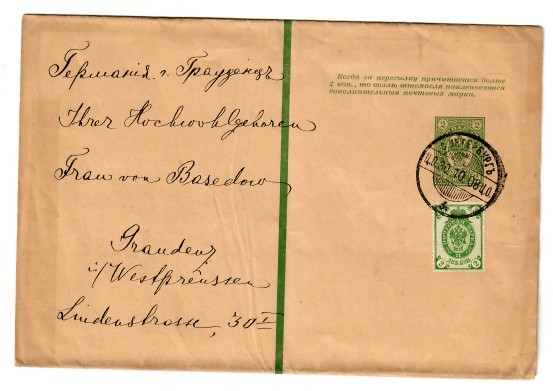 Германія. г. Грауденцъ
Ihrer Hochwohlgeboren
Frau von Basedow
Graudenz
i/Westpreussen
Lindenstrasse, 30 I
Когда за пересылку причитается болѣе
2 коп., то возлѣ штемпеля наклеиваются
дополнительныя почтовыя марки.
2 2
С.ПЕТЕРБУРГЪ
30.10.08
2 2
ДВѢ КОП.